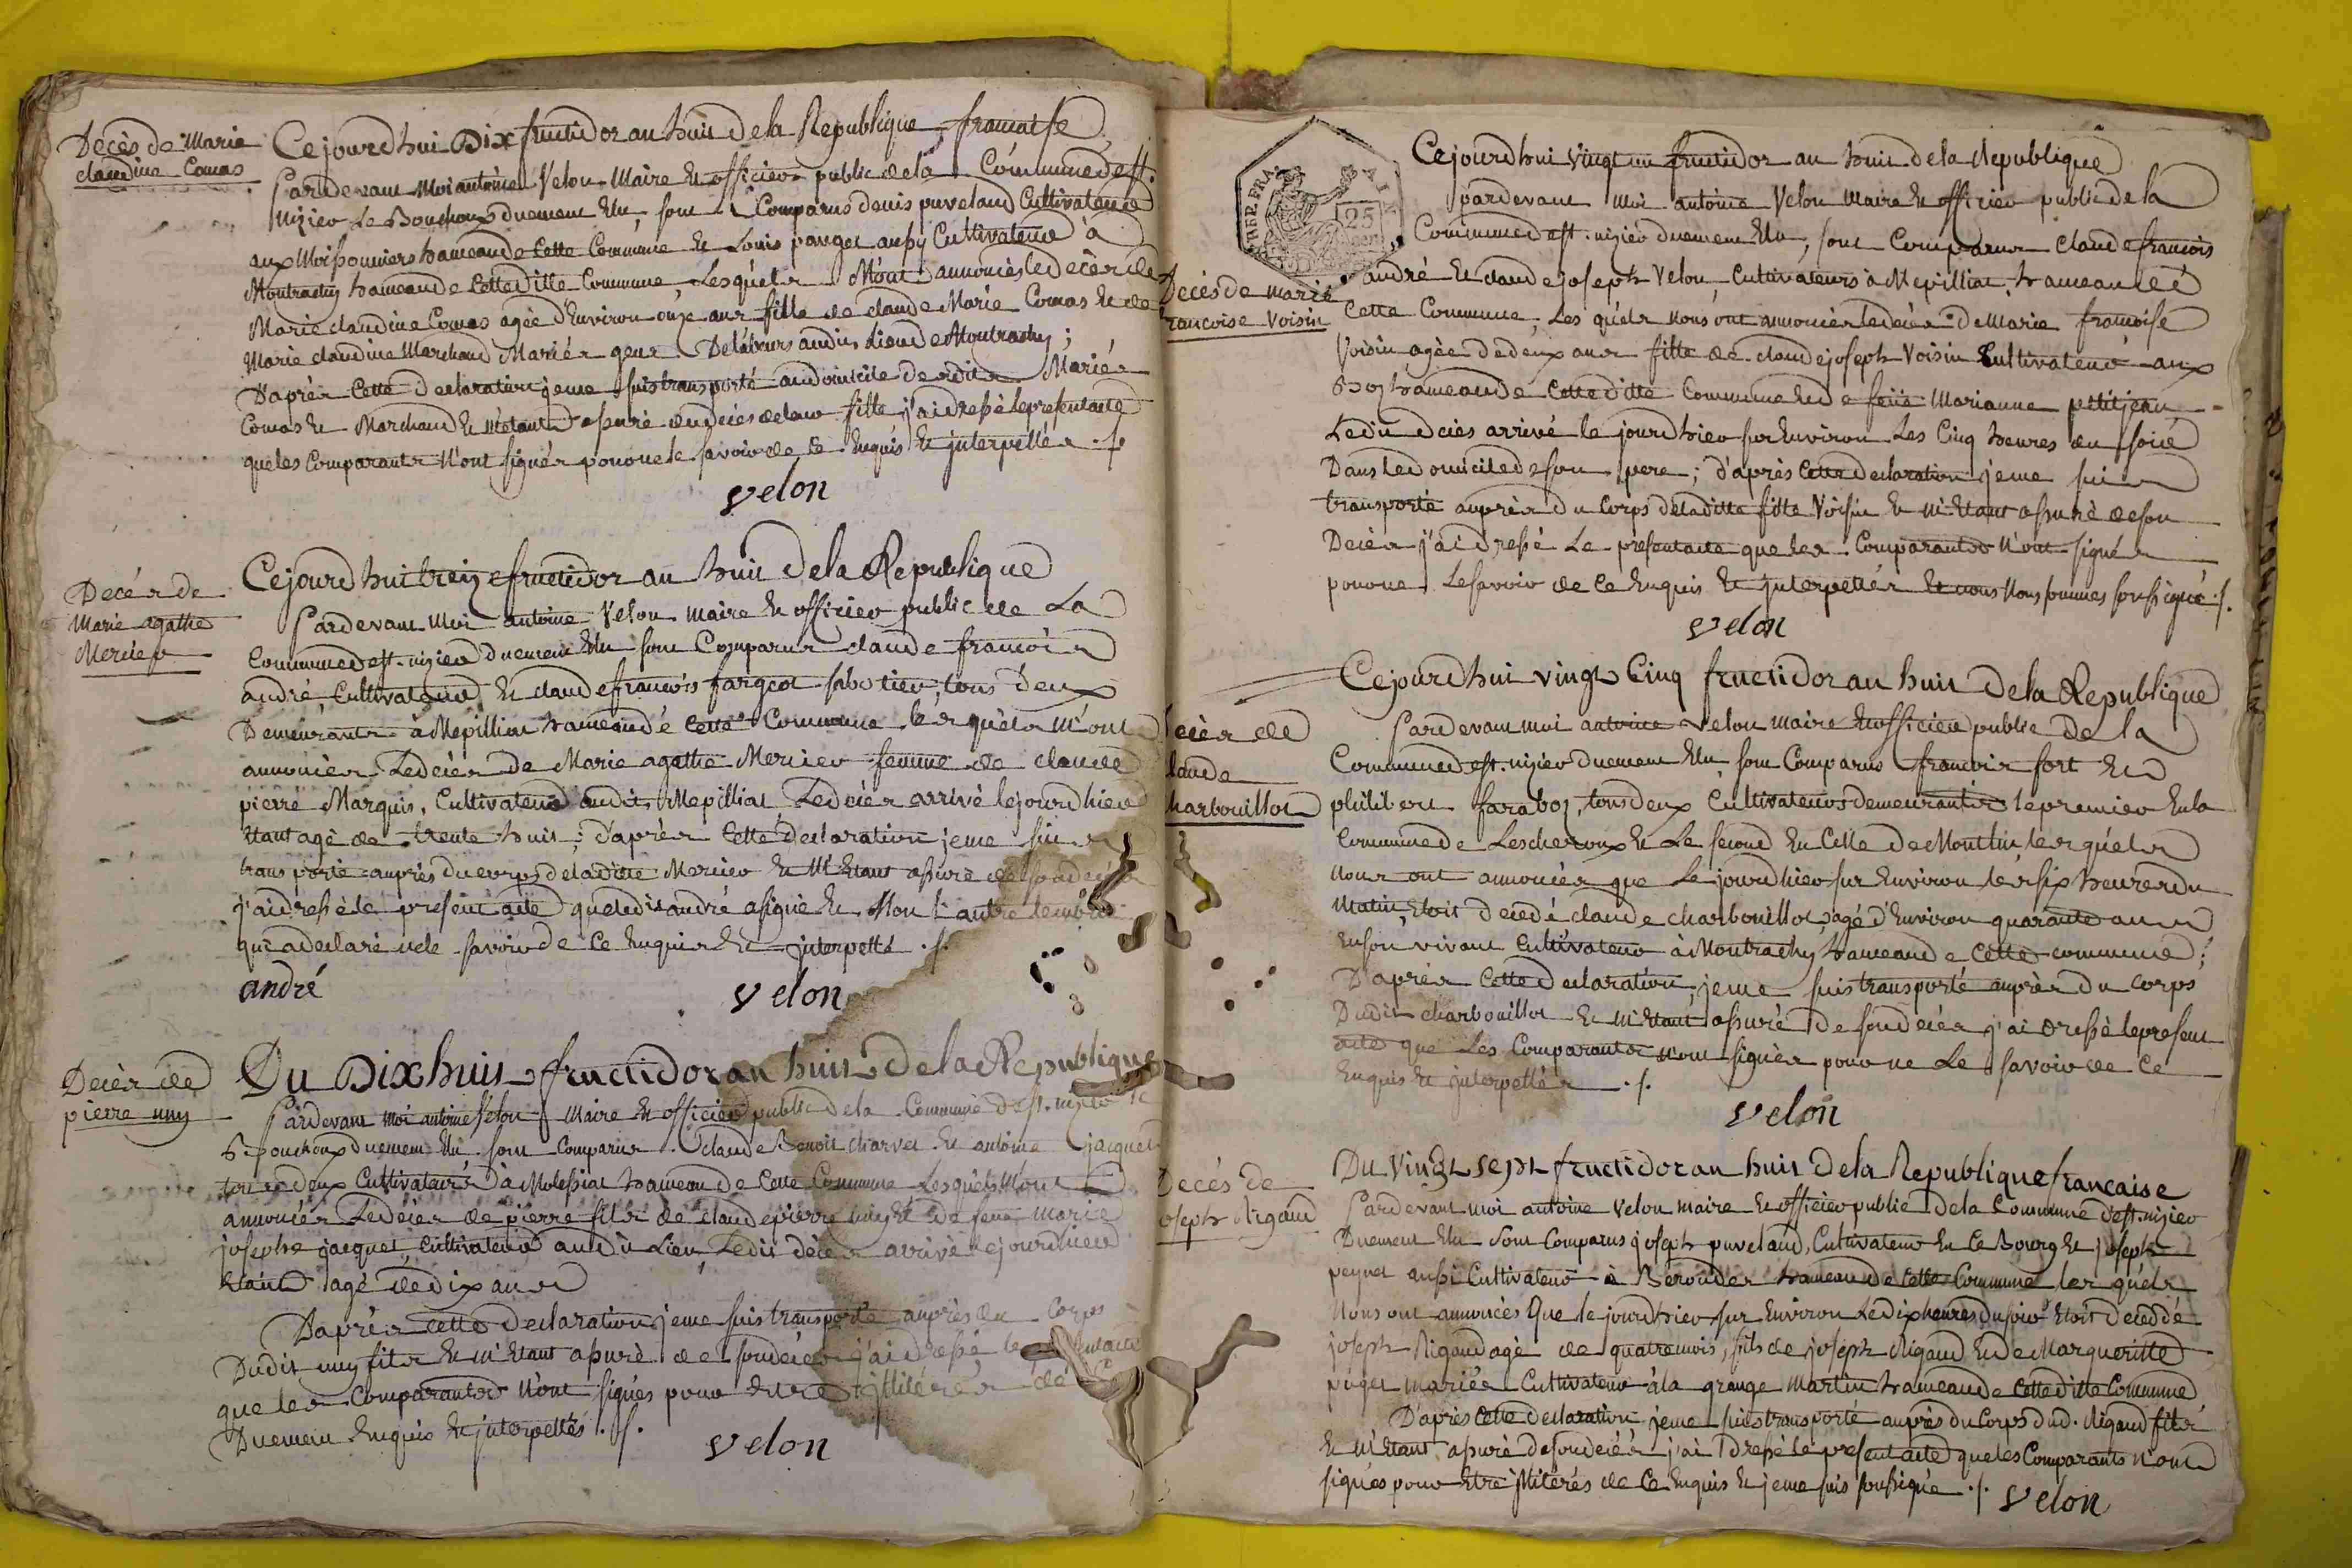 Decès de Marie
claudine Comas
Cejourdhui Dix fructidor an huit de la Republique francaise
Pardevant moi antoine Velon Maire et officier public de la Commune de st.
Nizier Le Bouchoux duement Elu, sont Comparus denis puvelaud Cultivateur
aux Moissonniers hameau de Cette Commune et Louis pauget aussy Cultivateur à
Montrachy hameau de Cette ditte Commune, Lesquels M'ont annoncès le decès de
Marie claudine Comas agée d'Environ onze ans fille de claude Marie Comas et de
Marie claudine Marchand Mariés gens De labeurs audit Lieu de Montrachy;
D'après Cette declaration je me suis transporté au domicile desdits Mariés
Comas et Marchand et M'etant assuré du decès de leur fille j'ai dressé le present acte
que les Comparants N'ont signés pour ne le savoir de ce Enquis et interpellés ./.
velon
Decés de
Marie agathe
Mercier
Cejourdhui treize fructidor an huit de la Republique
Pardevant Moi antoine Velon maire et officier public de La
Commune de st. nizier duement Elu sont Comparus claude francois
andré, Cultivateur, et claude francois fargeot sabotier, tous deux
Demeurants à Mepilliat hameau de Cette Commune les quels M'ont
annoncés Le decès de Marie agathe Mercier femme de claude
pierre Marquis, Cultivateur audit Mepilliat Le decès arrivé le jourdhier
Etant agé de trente huit; d'après Cette declaration je me suis
transporté auprès du corps de la ditte Mercier et M'Etant assuré de son decès
j'ai dressé le present acte que ledit andré a signé et Non l'autre temoin
qui a declaré ne le savoir de Ce Enquis et interpellé ./.
andré
velon
Decès de
pierre uny
Du Dix huit fructidor an huit de la Republique
Pardevant moi antoine Velon Maire et officier public de la Commune de st. nizier le
Bouchoux duement Elu sont Comparus claude Benoit charvet et antoine jacquet
tous deux Cultivateurs à Molessiat hameau de Cette Commune Lesquels M'ont
annoncés Le decès de pierre fils de claude pierre uny et de feue marie
josephe jacquet, Cultivateur audit Lieu, Ledit decès arrivé le jourdhier
Etant agé de dix ans
D'après cette declaration je me suis transporté auprès du Corps
Dudit uny fils et M'Etant assuré de son decès j'ai dressé le present acte
que les Comparants N'ont signés pour Etre illitérés de Ce
Duement Enquis et interpellés ./.
velon
TIMBRE
25
Decès de marie
francoise Voisin
Cejourdhui vingt un fructidor an huit de la Republique
pardevant moi antoine Velon Maire et officier public de la
Commune de st. nizier duement Elu, sont Comparus claude francois
andré et claude joseph Velon, Cultivateurs à Mepilliat, hameau de
Cette Commune, Les quels Nous ont annoncés le decès de Marie francoise
Voisin agée de deux ans fille de claude joseph Voisin Cultivateur aux
Boz hameau de Cette ditte Commune et de feue Marianne petitjean
Ledit decès arrivé le jourdhier sur Environ Les Cinq heures du soir
Dans le domicile de son pere; d'après Cette declaration je me suis
transporté auprès du Corps de laditte fille Voisin et M'Etant assuré de son
Decès j'ai dressé Le present acte que les Comparants N'ont signés
pour ne Le savoir de Ce Enquis et interpellés et nous Nous sommes soussigné ./.
velon
Decès de
Claude
charbouillot
Cejourdhui vingt Cinq fructidor an huit de la Republique
Pardevant moi antoine velon maire et officier public de la
Commune de st. nizier duement Elu, sont Comparus francois fort et
philibert faraboz, tous deux Cultivateurs demeurants le premier En la
Commune de Lescheroux et Le second En Celle de Montlin lesquels
Nous ont annoncés que Le jourdhier sur Environ les six heures du
Matin, Etoit decedé claude charbouillot, agé d'Environ quarante ans
En son vivant Cultivateur à Montrachy, hameau de Cette commune;
D'après Cette declaration je me suis transporté auprès du corps
Dudit charbouillot et M'Etant assuré de son decès j'ai dressé le present
acte que Les Comparants N'ont signés pour ne Le savoir de Ce
Enquis et interpellés ./.
velon
Decés de
joseph Rigaud
Du vingt sept fructidor an huit de la Republique francaise
Pardevant moi antoine velon maire et officier public de la Commune de st. nizier
Duement Elu sont Comparus joseph puvelaud, Cultivateur En Ce Bourg et joseph
peynet aussi Cultivateur à Berouder hameau de Cette Commune les quels
Nous ont annoncés Que le jourdhier sur Environ Le dix heures du soir Etoit decedé
joseph Rigaud agé de quatre mois, fils de joseph Rigaud Et de Margueritte
puget mariés Cultivateur à la grange Martin hameau de Cette ditte Commune
D'après Cette declaration je me suis transporté auprès du Corps dud. Rigaud fils
et M'Etant assuré de son decés j'ai dressé le present acte que les Comparants N'ont
signés pour Etre illitérés de Ce Enquis et je me suis soussigné ./.
velon